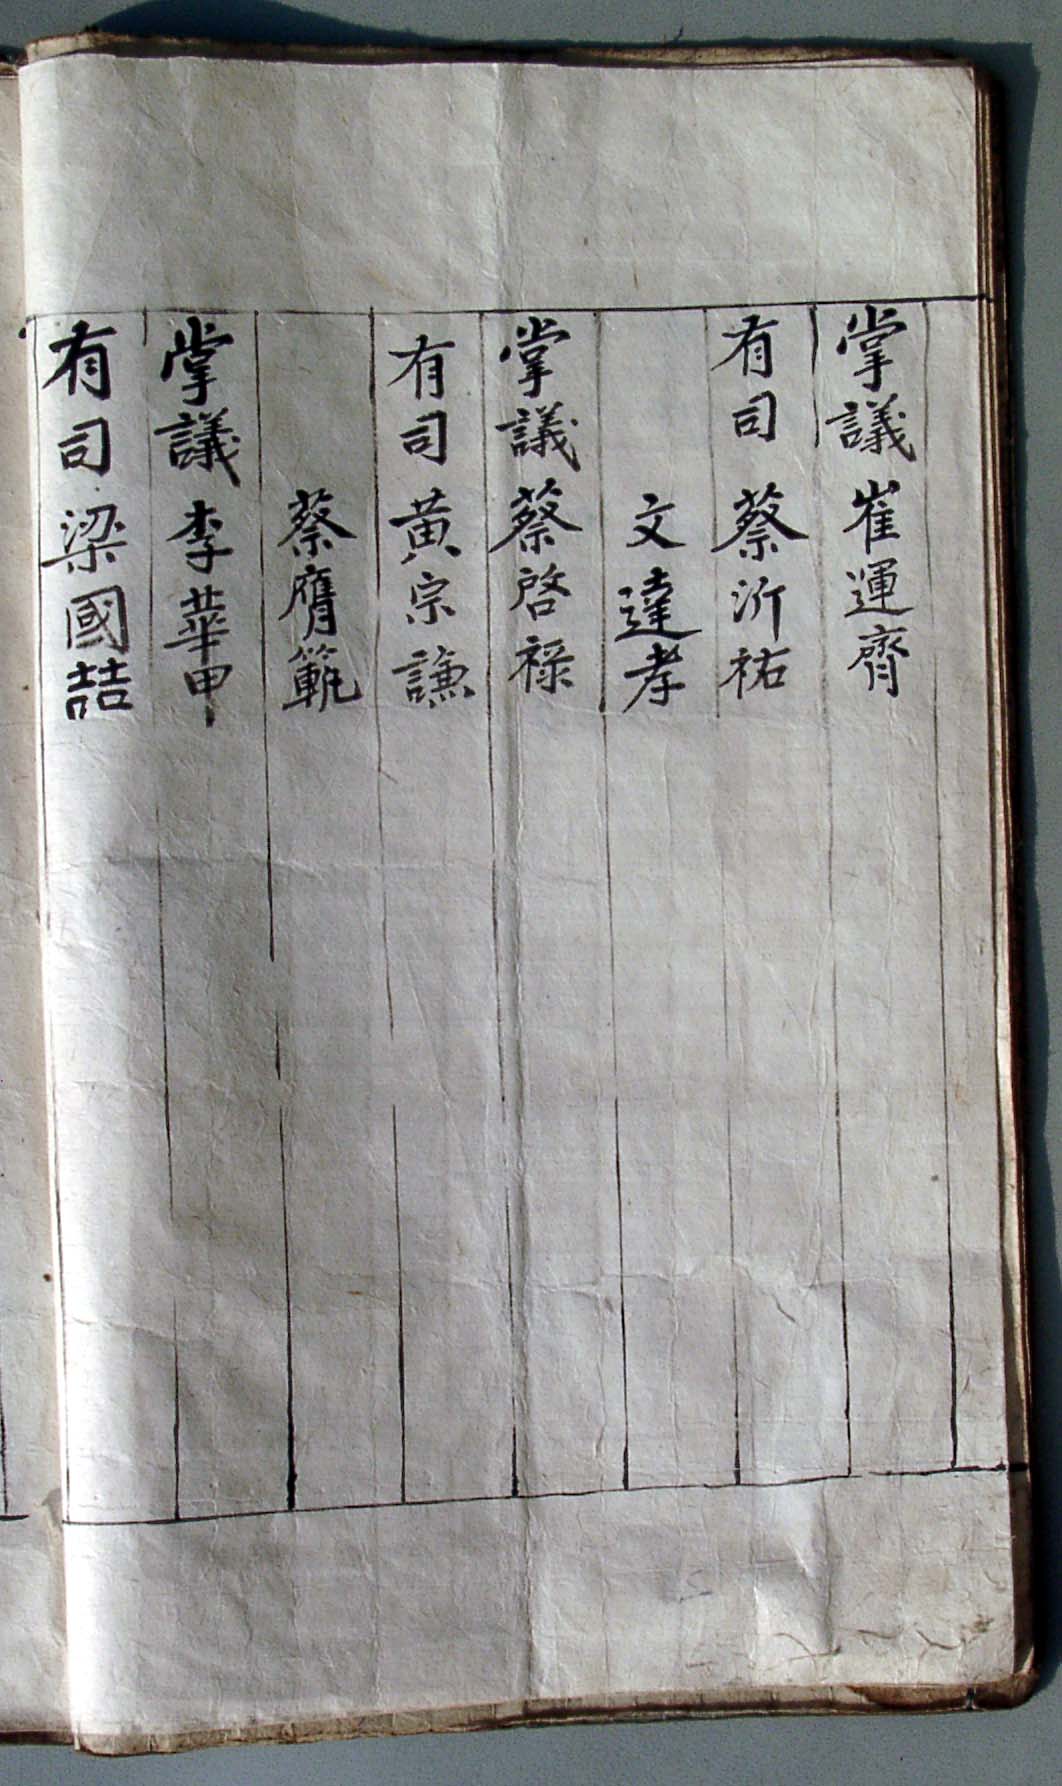 掌議 崔運齊
有司 蔡沂祐
文達孝
掌議 蔡啓祿
有司 黃宗謙
蔡膺範
掌議 李華甲
有司 梁國喆